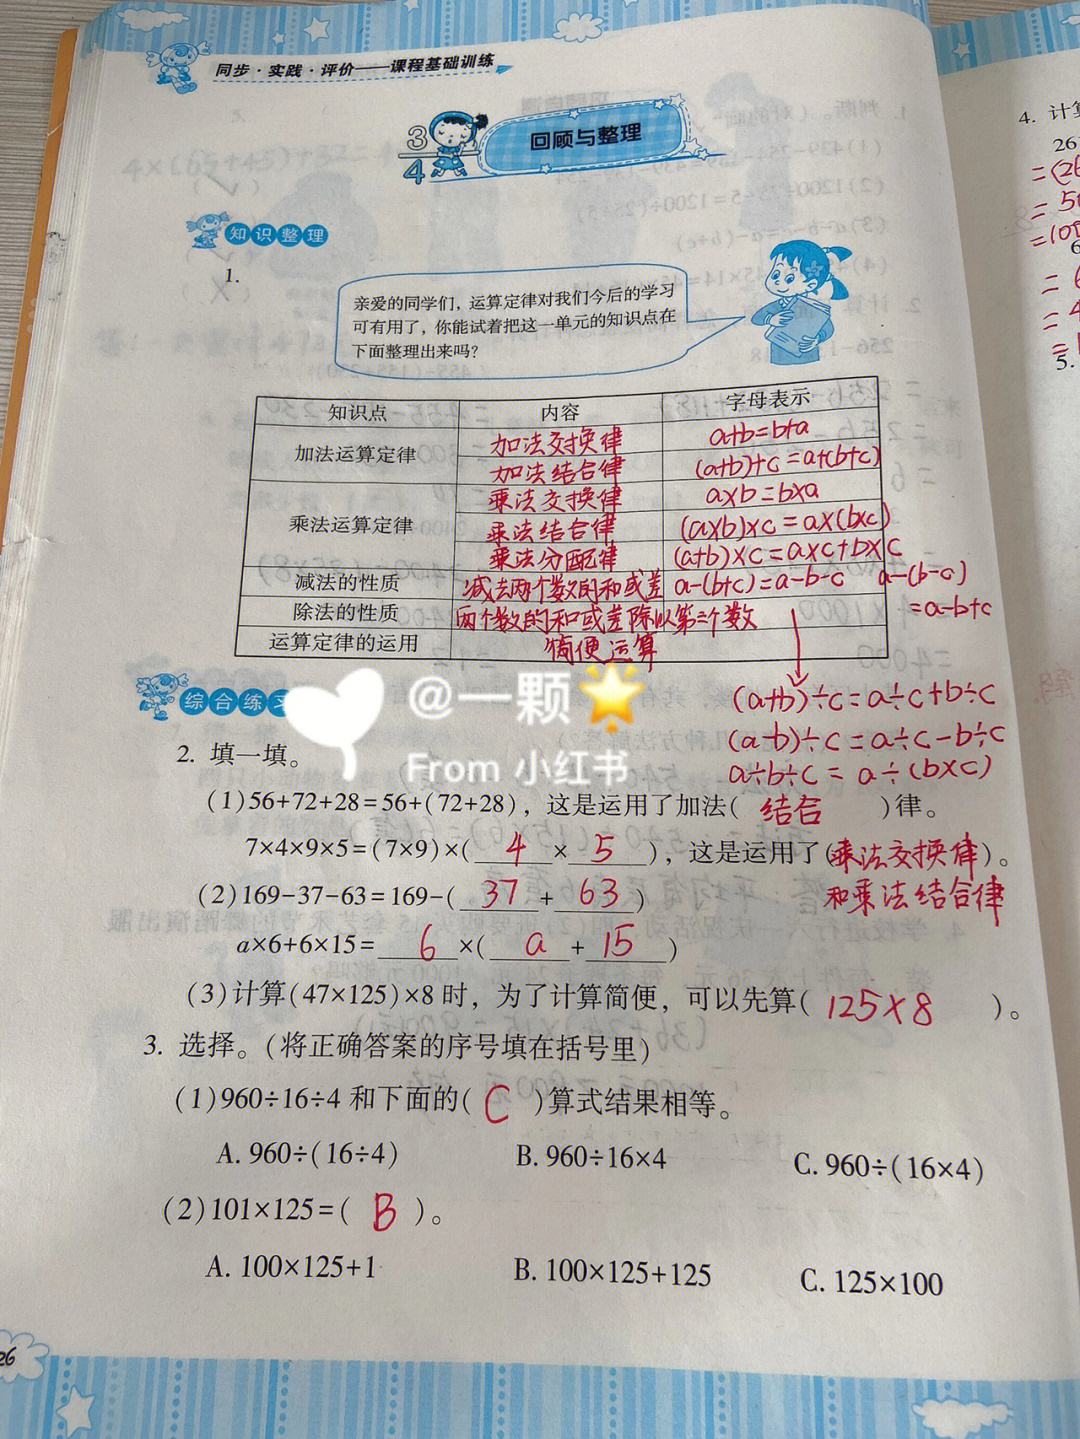 同步·实践·评价——课程基础训练
3/4 回顾与整理
知识整理
1.
亲爱的同学们，运算定律对我们今后的学习
可有用了，你能试着把这一单元的知识点在
下面整理出来吗?
知识点 内容 字母表示
加法运算定律 加法交换律 a+b=b+a
加法结合律 (a+b)+c=a+(b+c)
乘法运算定律 乘法交换律 a×b=b×a
乘法结合律 (a×b)×c=a×(b×c)
乘法分配律 (a+b)×c=a×c+b×c
减法的性质 减去两个数的和或差 a-(b+c)=a-b-c a-(b-c)
=a-b+c
除法的性质 两个数的和或差除以第三个数
运算定律的运用 简便运算
(a+b)÷c=a÷c+b÷c
(a-b)÷c=a÷c-b÷c
a÷b÷c=a÷(b×c)
综合练习
@一颗🌟
From 小红书
2. 填一填。
(1)56+72+28=56+(72+28)，这是运用了加法( 结合 )律。
7×4×9×5=(7×9)×( 4 × 5 )，这是运用了(乘法交换律)。
和乘法结合律
(2)169-37-63=169-( 37 + 63 )
a×6+6×15= 6 ×( a + 15 )
(3)计算(47×125)×8时，为了计算简便，可以先算( 125×8 )。
3. 选择。(将正确答案的序号填在括号里)
(1)960÷16÷4和下面的( C )算式结果相等。
A. 960÷(16÷4) B. 960÷16×4 C. 960÷(16×4)
(2)101×125=( B )。
A. 100×125+1 B. 100×125+125 C. 125×100
26
4. 计算
26
5.